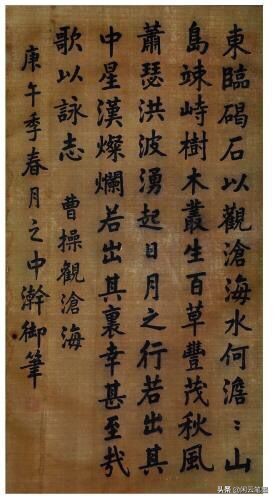 東臨碣石以觀滄海水何澹〻山
島竦峙樹木叢生百草豐茂秋風
蕭瑟洪波湧起日月之行若出其
中星漢燦爛若出其裏幸甚至哉
歌以詠志 曹操觀滄海
庚午季春月之中瀚御筆
头条@闲云笔畫